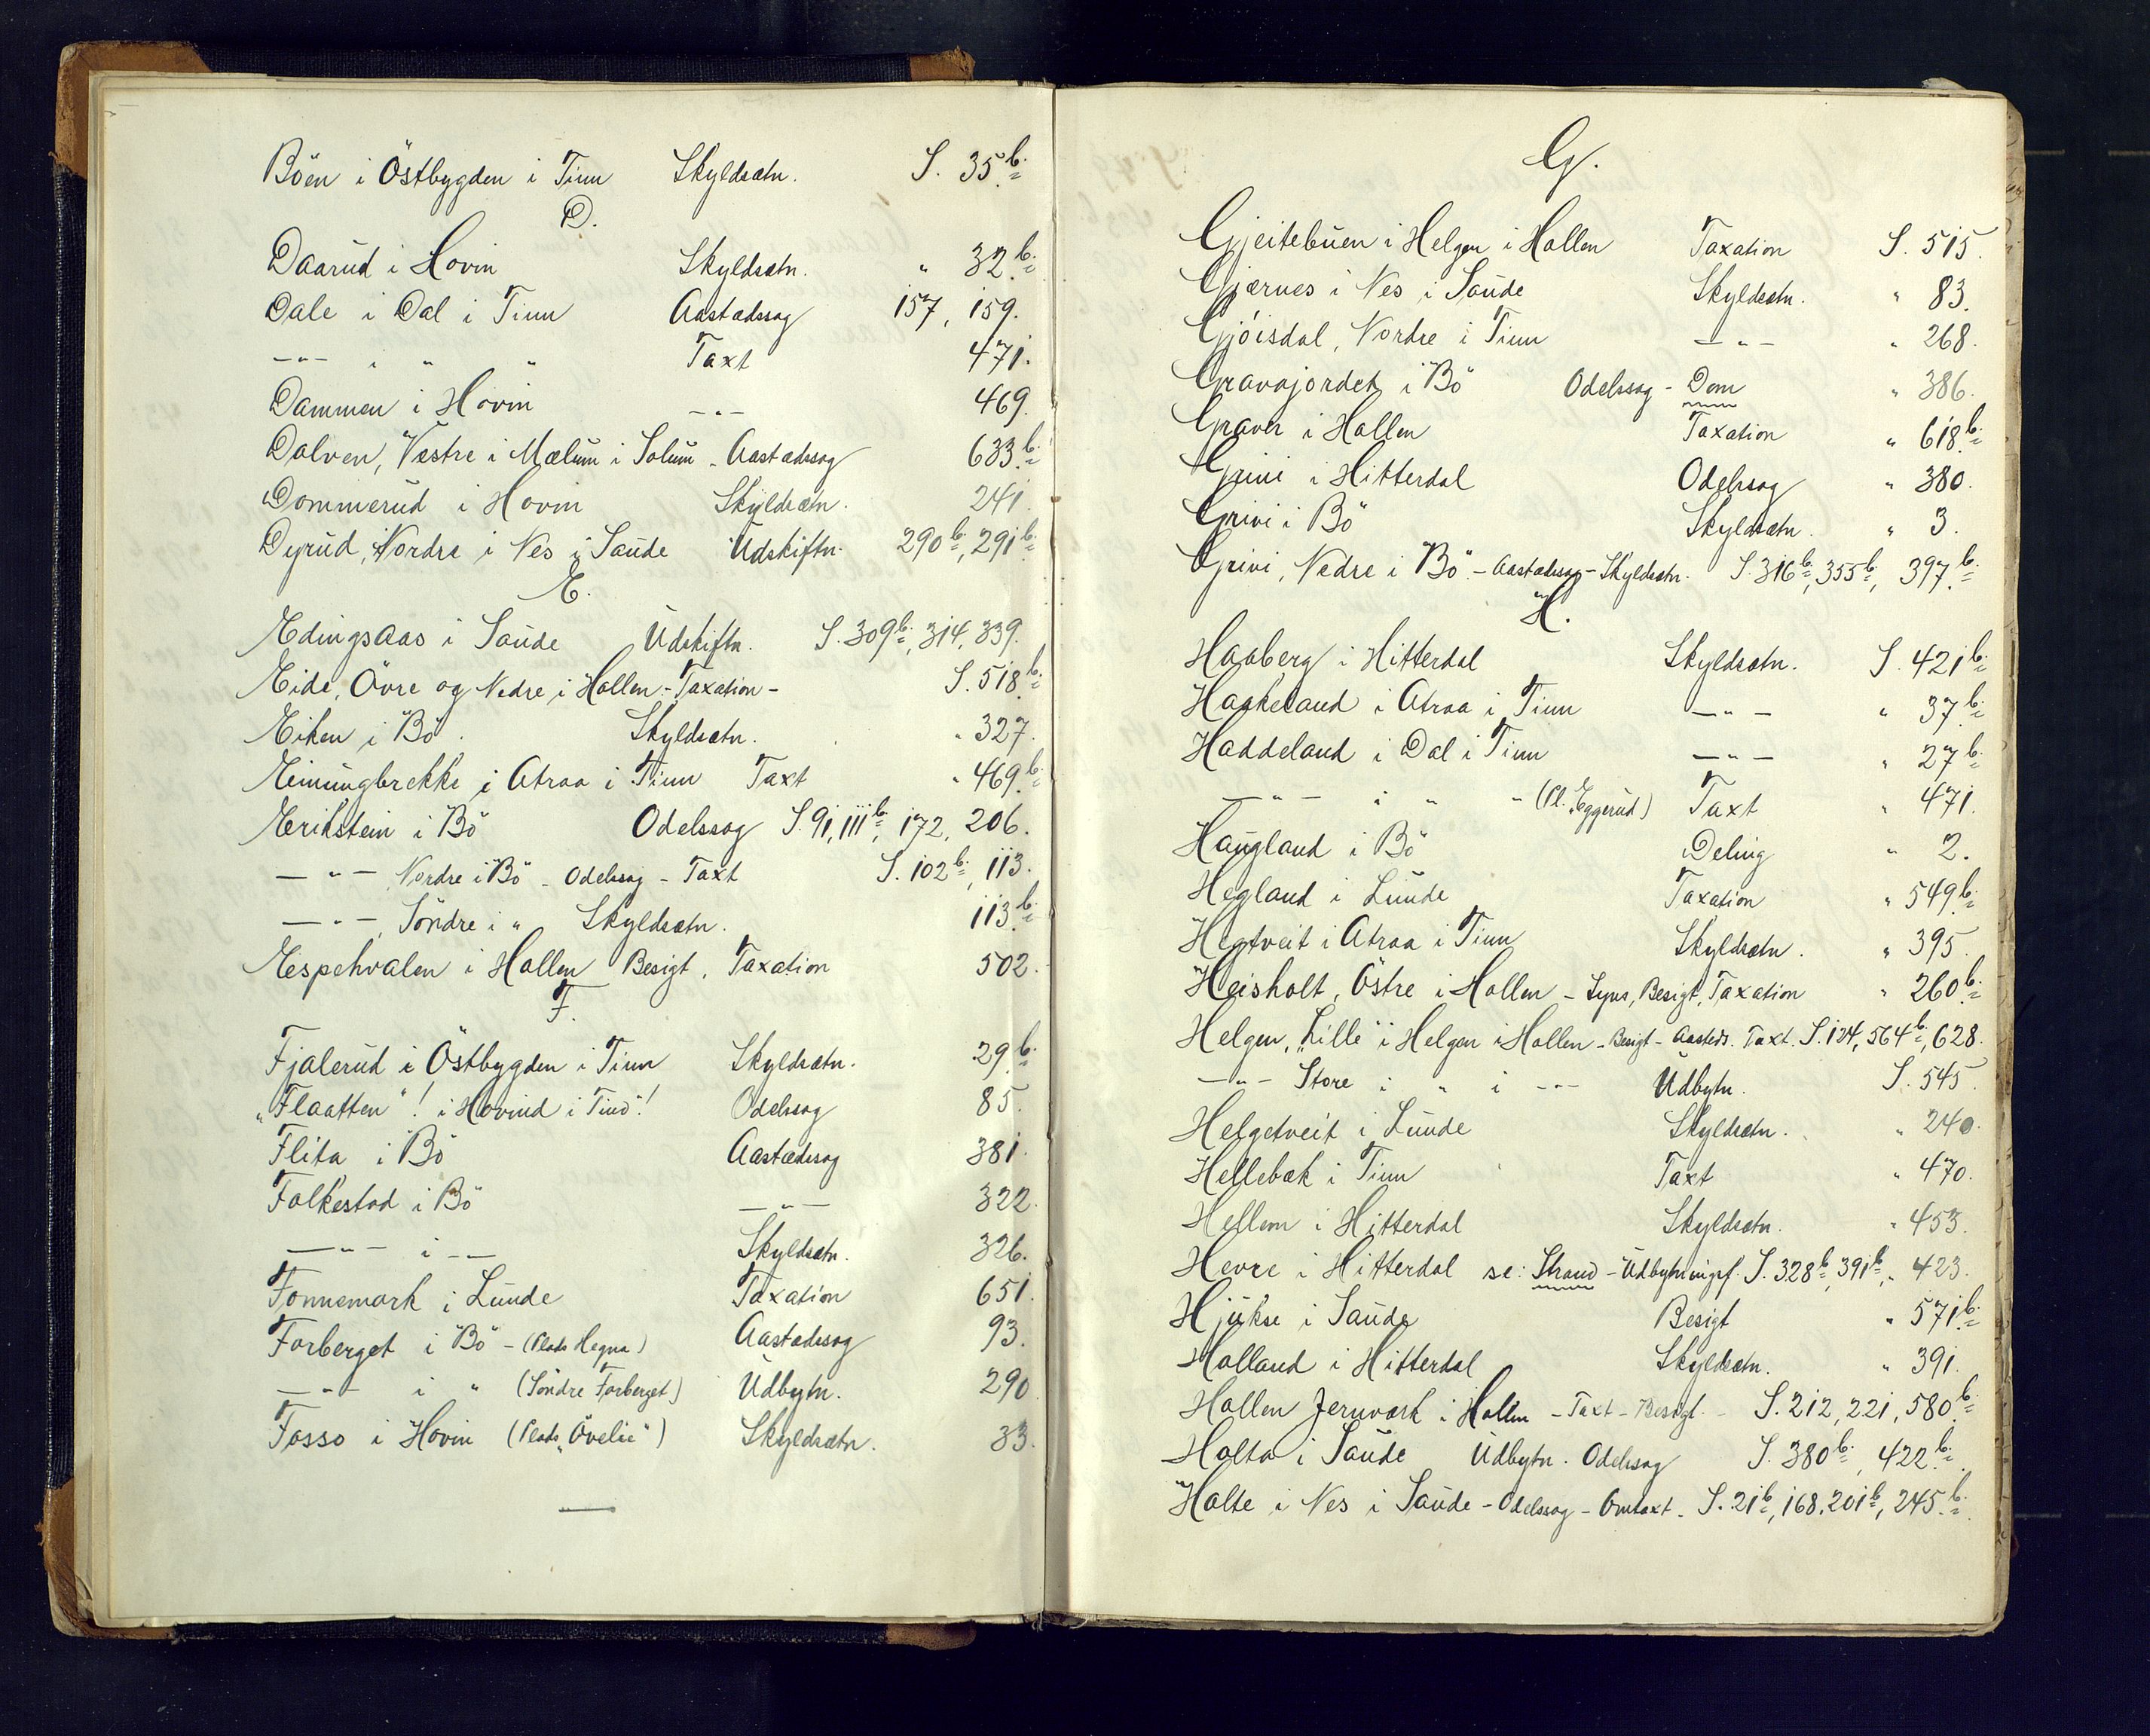 Böen i Östbygden i Tinn Skyldsætn. S. 35 b.
D.
Daarud i Hovin Skyldsætn. " 32 b.
Dale i Dal i Tinn Aastædssag 157, 159.
—"— i " " Taxt 471.
Dammen i Hovin —"— 469.
Dalven, Vestre i Mælum i Solum - Aastædssag 633 b.
Dommerud i Hovin Skyldsætn. 241.
Dyrud, Nordre i Nes i Saude Udskiftn. 290 b., 291 b.
E.
Edingsaas i Saude Udskiftn. S. 309 b., 314, 339.
Eide, Övre og Nedre i Hollen - Taxation - S. 518 b.
Eiken i Bö. Skyldsætn. " 327.
Einungbrekke i Atraa i Tinn Taxt " 469 b.
Erikstein i Bö Odelssag S. 91, 111 b., 172, 206.
—"— Nordre i Bö - Odelssag - Taxt S. 102 b., 113.
—"—, Söndre i " Skyldsætn. 113 b.
Espehvalen i Hollen Besigt. Taxation 502.
F.
Fjalerud i Östbygden i Tinn Skyldsætn. 29 b.
"Flaatten"! i Hovind i Tind"! Odelssag 85.
Flita i Bö Aastædssag 381.
Folkestad i Bö —"— 322.
—"— i -- Skyldsætn. 326.
Fonnemork i Lunde Taxation 651.
Forberget i Bö - (Plads Hegna) Aastædssag 93.
—"— i " (Söndre Forberget) Udbytn. 290
Fosso i Hovin (Plads "Övelii") Skyldsætn. 33.
G.
Gjeitebuen i Helgen i Hollen Taxation S. 515.
Gjernes i Nes i Saude Skyldsætn. " 83.
Gjöisdal, Nordre i Tinn —"— " 268.
Gravajordet i Bö Odelssag - Dom " 386.
Graver i Hollen Taxation " 618 b.
Grini i Hitterdal Odelssag " 380.
Grivi i Bö Skyldsætn. " 3.
Grivi, Nedre i Bö - Aastædssag - Skyldsætn. S. 316 b., 355 b., 397 b.
H.
Haaberg i Hitterdal Skyldsætn. S. 421 b.
Haakeland i Atraa i Tinn —"— " 37 b.
Haddeland i Dal i Tinn —"— " 27 b.
—"— i " " (Pl. Eggerud) Taxt " 471.
Haugland i Bö Deling " 2.
Hegland i Lunde Taxation " 549 b.
Hegtveit i Atraa i Tinn Skyldsætn. " 395.
Heisholt, Östre i Hollen - Syns, Besigt, Taxation " 260 b.
Helgen, "Lille" i Helgen i Hollen - Besigt - Aasteds. Taxt. S. 124, 564 b., 628.
—"— Store i " i -"- Udbytn. S. 545.
Helgetveit i Lunde Skyldsætn. " 240.
Hellebæk i Tinn Taxt " 470.
Hellem i Hitterdal Skyldsætn. " 453.
Hevre i Hitterdal se: Strand - Udbytningsf. S. 328 b., 391 b., " 423.
Hjukse i Saude Besigt " 571 b.
Holland i Hitterdal Skyldsætn. " 391.
Hollen Jernværk i Hollen - Taxt - Besigt - S. 212, 221, 580 b.
Holta i Saude Udbytn. Odelssag S. 380 b., 422 b.
Holte i Nes i Saude - Odelssag - Omtaxt. S. 21 b., 168, 201 b., 245 b.